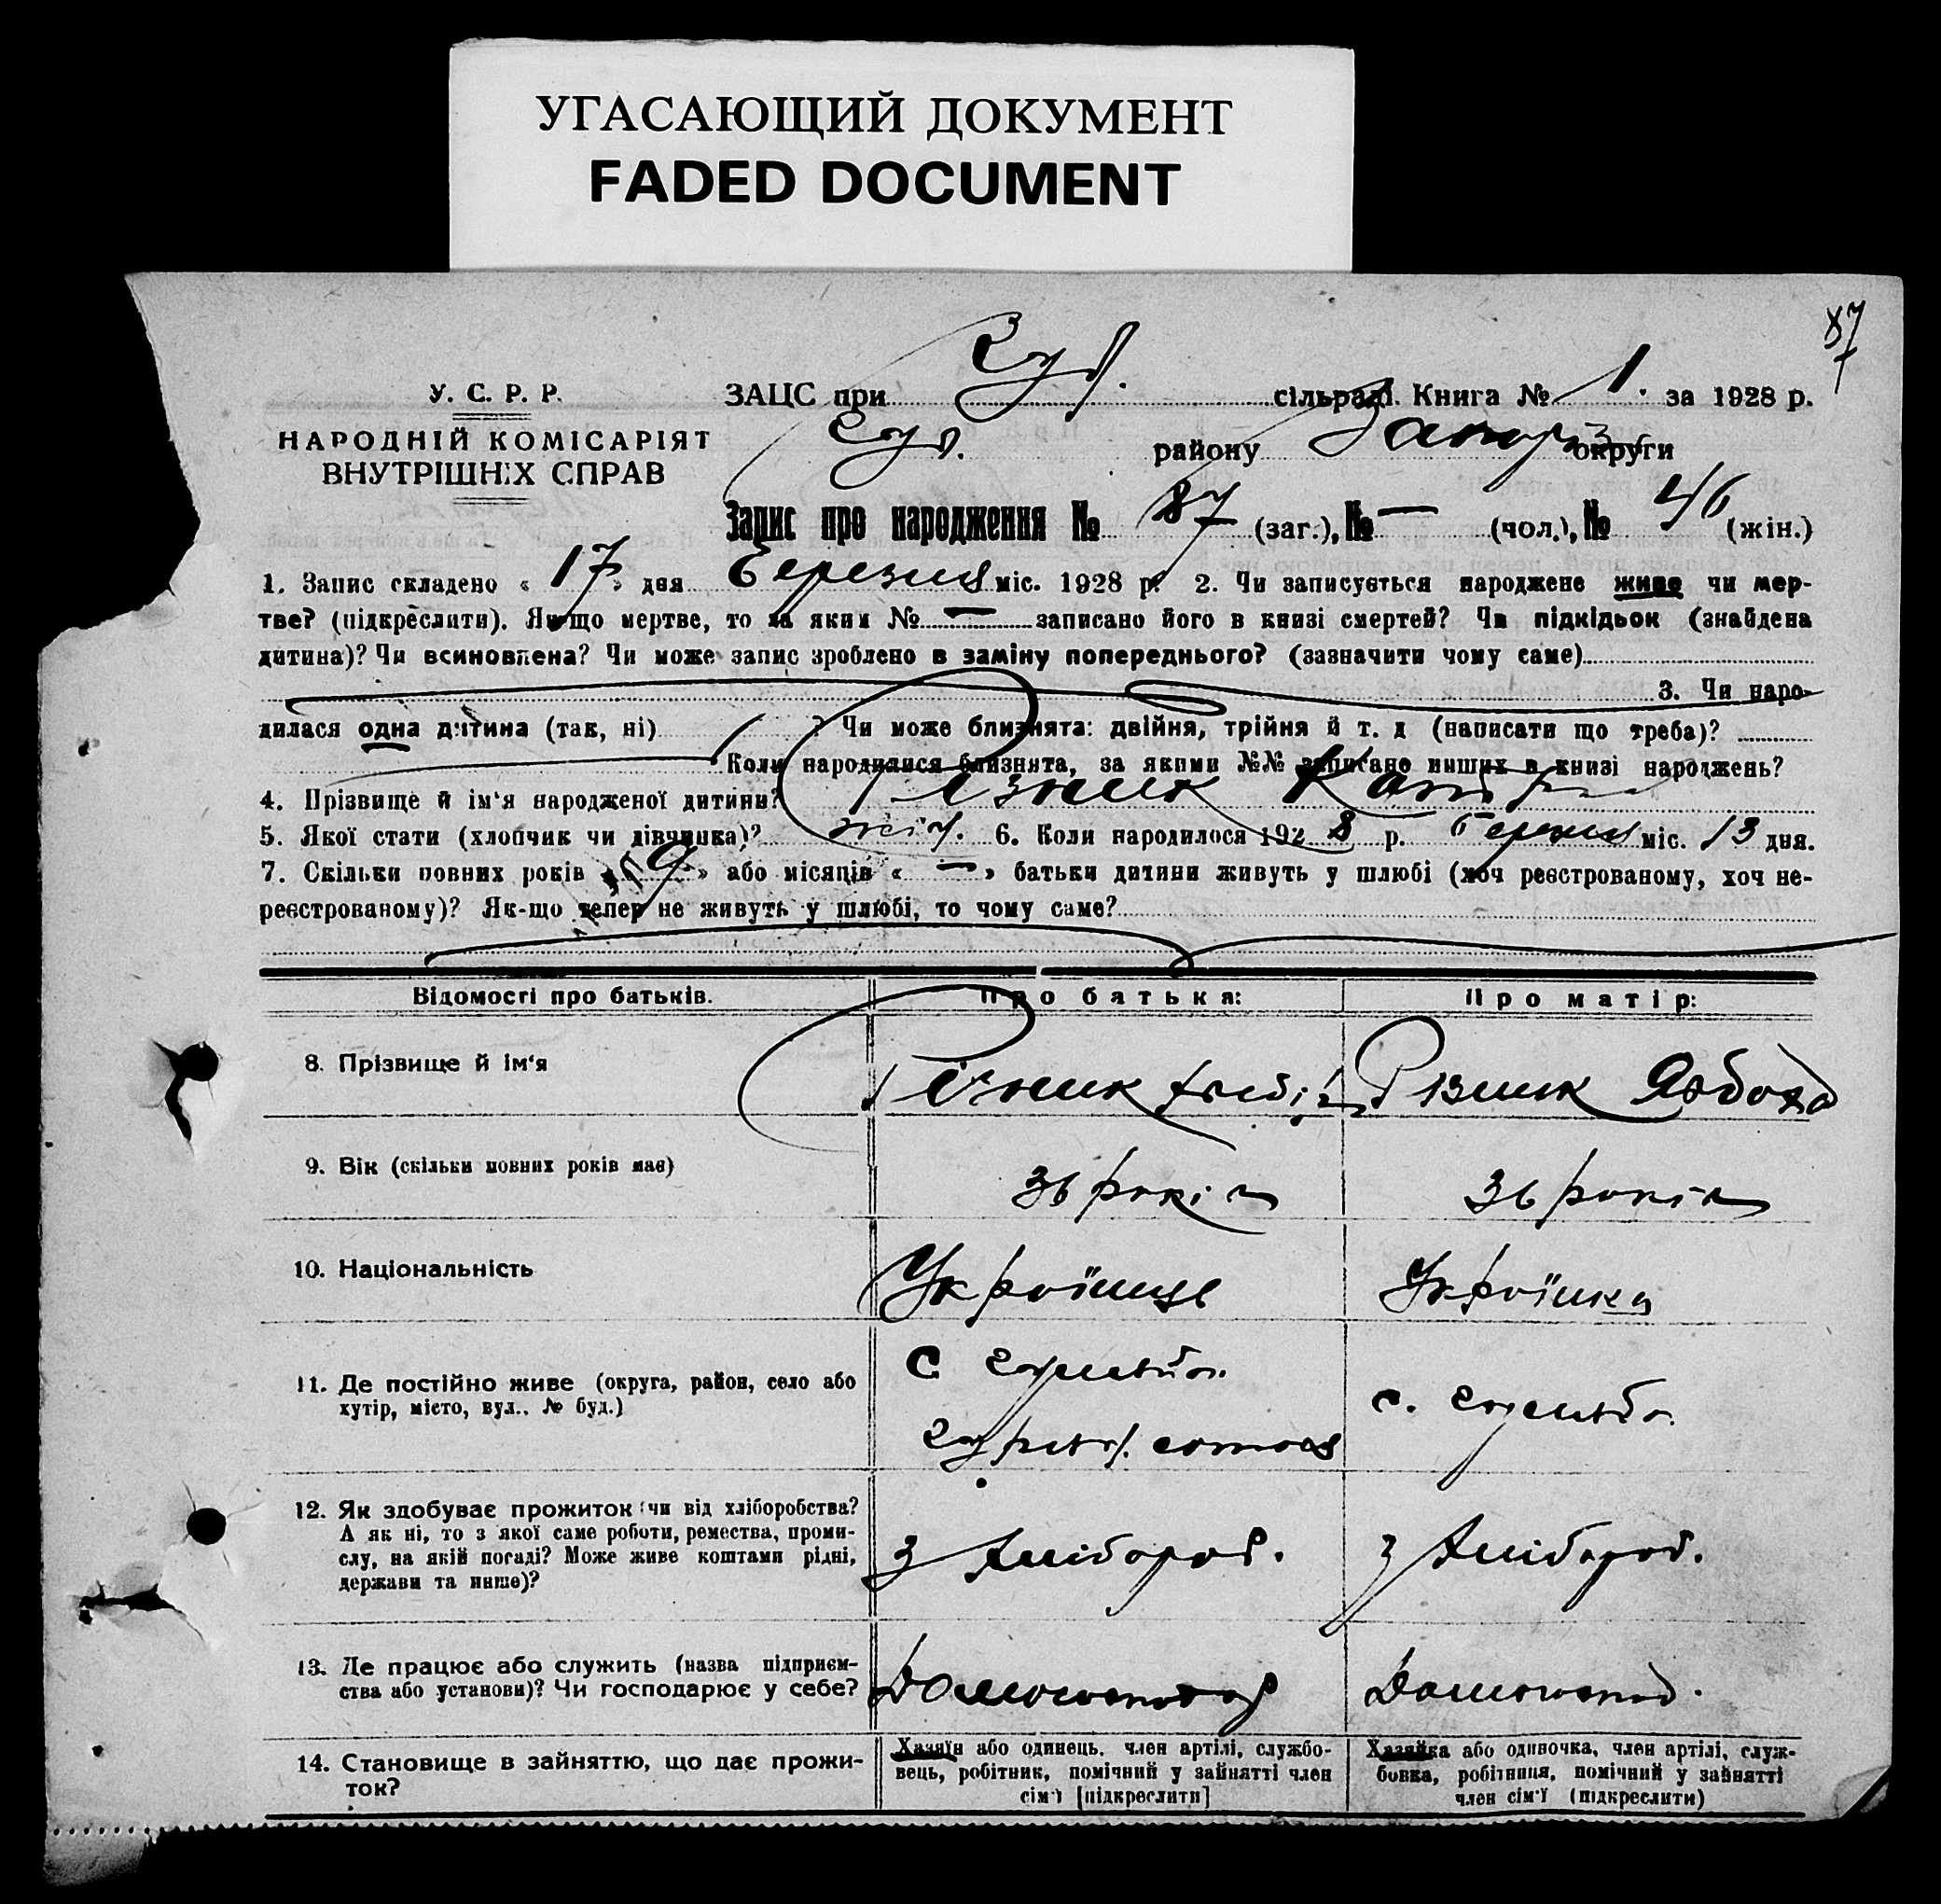 УГАСАЮЩИЙ ДОКУМЕНТ
FADED DOCUMENT
87
У. С. Р. Р.
НАРОДНІЙ КОМІСАРІЯТ
ВНУТРІШНІХ СПРАВ
ЗАЦС при сільраді. Книга № 1. за 1928 р.
району Запоріз округи
Запис про народження № 87 (заг.), № — (чол.), № 46 (жін.)
1. Запис складено « 17 » дня Березня міс. 1928 р. 2. Чи записується народжене живе чи мер-
тве? (підкреслити). Якщо мертве, то за яким № — записано його в книзі смертей? Чи підкідьок (знайдена
дитина)? Чи всиновлена? Чи може запис зроблено в заміну попереднього? (зазначити чому саме)
3. Чи наро-
дилася одна дитина (так, ні) ? Чи може близнята: двійня, трійня й т. д (написати що треба)?
Коли народилися близнята, за якими №№ записано инших в книзі народжень?
4. Прізвище й ім'я народженої дитини? Різник
5. Якої стати (хлопчик чи дівчинка)? жін. 6. Коли народилося 192 8 р. березня міс. 13 дня.
7. Скільки повних років « 19 » або місяців « — » батьки дитини живуть у шлюбі (хоч реєстрованому, хоч не-
реєстрованому)? Як-що тепер не живуть у шлюбі, то чому саме?
Відомості про батьків. Про батька: Про матір:
8. Прізвище й ім'я Різник Різник
9. Вік (скільки повних років має) 36 років 36 років
10. Національність Українць Українка
11. Де постійно живе (округа, район, село або
хутір, місто, вул.. № буд.)
12. Як здобуває прожиток (чи від хліборобства?
А як ні, то з якої саме роботи, ремества, проми-
слу, на якій посаді? Може живе коштами рідні,
держави та инше)?
з хлібороб. з хлібороб.
13. Де працює або служить (назва підприєм-
ства або установи)? Чи господарює у себе?
Домогосподар Домогоспод.
14. Становище в зайняттю, що дає прожи-
ток?
Хазяїн або одинець. член артілі, службо-
вець, робітник, помічний у зайнятті член
сім'ї [підкреслити]
Хазяйка або одиночка, член артілі, служ-
бовка, робітниця, помічний у зайнятті
член сім'ї (підкреслити)